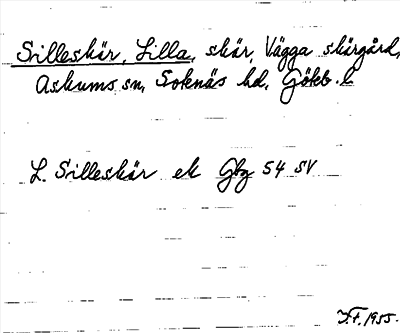 Silleskär, Lilla, skär, Vägga skärgård,
Askums sn, Sotenäs hd, Göteb. l
L. Silleskär ek Gbg 54 SV
1955.